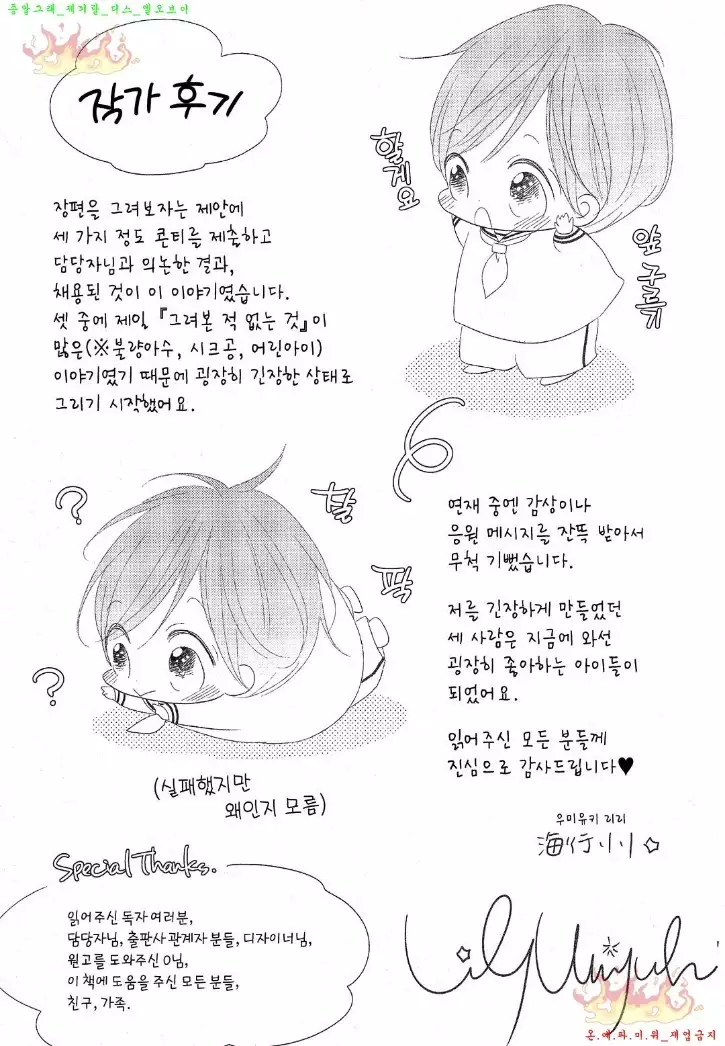 작가 후기
할게요
앞 구르기
장편을 그려보자는 제안에
세 가지 정도 콘티를 제출하고
담당자님과 의논한 결과,
채용된 것이 이 이야기였습니다.
셋 중에 제일 『그려본 적 없는 것』이
많은(※불량아수, 시크공, 어린아이)
이야기였기 때문에 굉장히 긴장한 상태로
그리기 시작했어요.
?
?
팍
연재 중엔 감상이나
응원 메시지를 잔뜩 받아서
무척 기뻤습니다.
저를 긴장하게 만들었던
세 사람은 지금에 와선
굉장히 좋아하는 아이들이
되었어요.
읽어주신 모든 분들께
진심으로 감사드립니다♥
(실패했지만
왜인지 모름)
우미유키 리리
海行リリ
Special Thanks.
읽어주신 독자 여러분,
담당자님, 출판사 관계자 분들, 디자이너님,
원고를 도와주신 O님,
이 책에 도움을 주신 모든 분들,
친구, 가족.